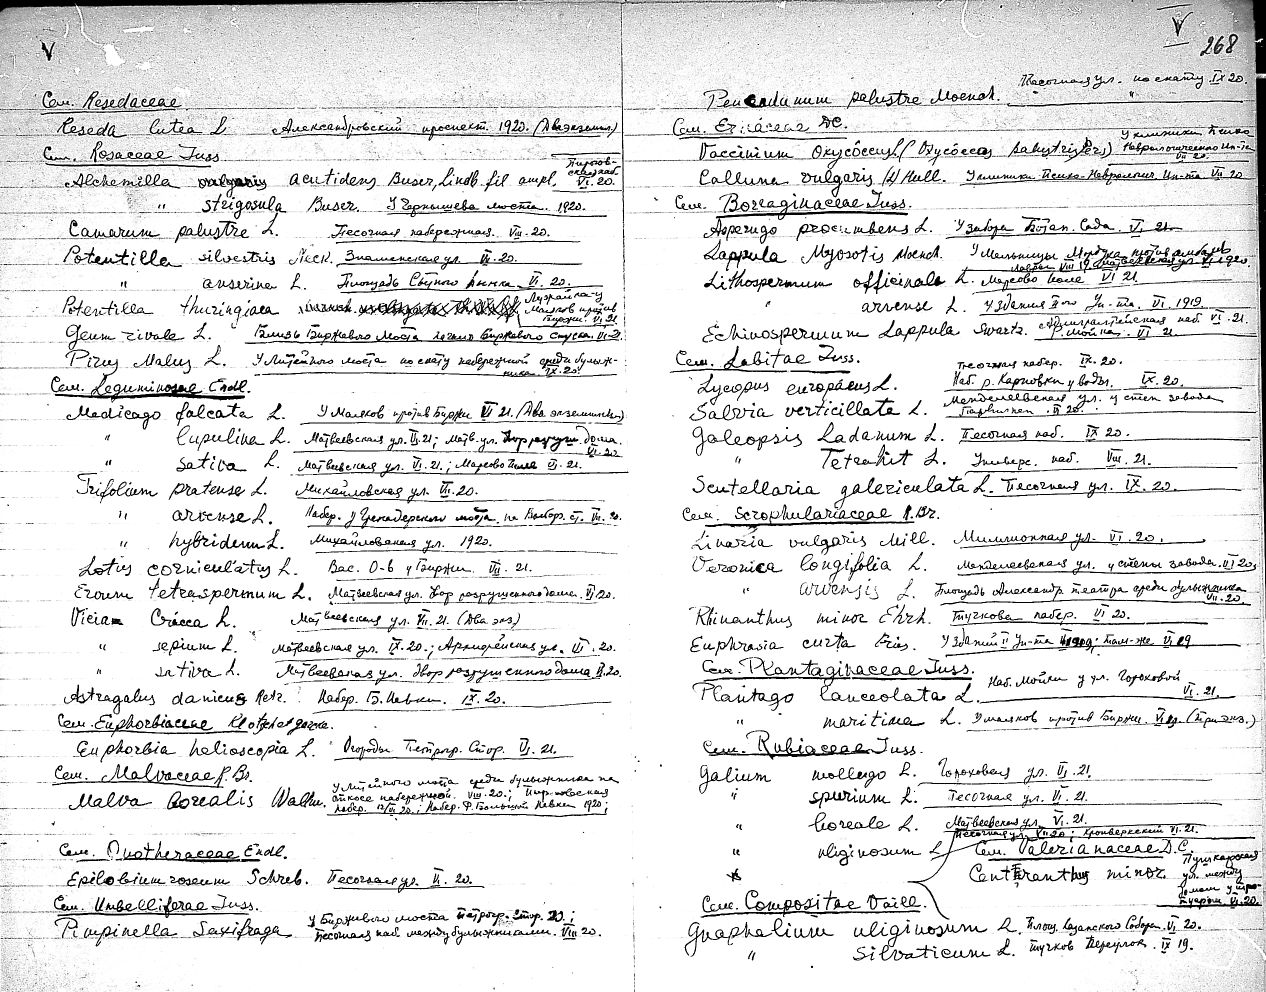 V
Сем. Resedaceae.
Reseda lutea L Александровский проспект. 1920. (Два экземпл)
Сем. Rosaceae Juss.
Alchemilla vulgaris acutidens Buser, Lindb. fil ampl. VI. 20.
" strigosula Buser. У Чернышева моста. 1920.
Comarum palustre L. Песочная набережная. VIII. 20.
Potentilla silvestris Neck. Знаменская ул. VII. 20.
" anserina L. Площадь Сытного рынка. VI. 20.
Potentilla thuringiaca Лужайка у Маяков против Биржи. VI. 21
Geum rivale L. Близь Биржевого Моста Биржевого спуска. VI-21.
Pirus Malus L. У Литейного моста по скату набережной среди булыж-
ника IX. 20.
Сем. Leguminosae Endl.
Medicago falcata L. У Маяков против Биржи VI 21. (Два экземпляра)
" lupulina L. Матвеевская ул. VI. 21; Матв. ул. Двор разруш. дома. VI. 20
" sativa L. Матвеевская ул. VI. 21.; Марсово Поле VI. 21.
Trifolium pratense L. Михайловская ул. VII. 20.
" arvense L. Набер. у Гренадерского моста, на Выборг. ст. VII. 20.
" hybridum L. Михайловская ул. 1920.
Lotus corniculatus L. Вас. О-в у Биржи. VII. 21.
Ervum tetraspermum L. Матвеевская ул. Двор разрушенного дома. VI. 20
Vicia Cracca L. Матвеевская ул. VII. 21. (Два экз)
" sepium L. Матвеевская ул. IX. 20.; Архиерейская ул. VII. 20.
" sativa L. Матвеевская ул. Двор разрушенного дома VI. 20.
Astragalus danicus Retz. Набер. Б. Невки. IX. 20.
Сем. Euphorbiaceae Klotzsch et Garcke.
Euphorbia helioscopia L. Огороды Петрогр. Стор. VI. 21.
Сем. Malvaceae R. Br.
Malva borealis Wallm. У Литейного моста среди булыжника на
откосе набережной. VIII. 20.;
Набер. VII. 20.; Набер. Большой Невки 1920;
Сем. Onotheraceae Endl.
Epilobium roseum Schreb. Песочная ул. VII. 20.
Сем. Umbelliferae Juss.
Pimpinella Saxifraga У Биржевого моста Петрогр. Стор. 20.;
Песочная наб. между булыжниками. VIII 20.
V
268
Песочная ул. по скату. IX 20.
Peucedanum palustre Moench. "
Сем. Ericaceae DC.
Vaccinium Oxycóccus L (Oxycóccos palustris Pers) У клиники Психо
Неврологического Ин-та VII 20.
Calluna vulgaris (L) Hull. У клиники Психо-Неврологич. Ин-та VII 20
Сем. Borraginaceae Juss.
Asperugo procumbens L. У забора Ботан. Сада. VI. 21.
Lappula Myosotis Moench. У Мельницы
Lithospermum officinale L. Марсово Поле VI 21.
" arvense L. У здания II-го Ин-та. VI. 1919.
Echinospermum Lappula Swartz. Адмиралтейская наб. VI. 21.
р. Мойка. VI 21
Сем. Labitae Juss.
Песочная набер. IX. 20.
Lycopus európaeus L. Наб. р. Карповки у воды. IX. 20.
Salvia verticillata L. Менделеевская ул. у стен завода
20.
Galeopsis Ladanum L. Песочная наб. IX 20.
" Tetrahit L. Универс. наб. VIII. 21.
Scutellaria galericulata L. Песочная ул. IX. 20.
Сем. Scrophulariaceae R. Br.
Linaria vulgaris Mill. Миллионная ул. VI. 20.
Veronica longifolia L. Менделеевская ул. у стены завода. VII 20.
" arvensis L. Площадь Александр. театра среди булыжника
VII. 20.
Rhinanthus minor Ehrh. Тучкова набер. VI 20.
Euphrasia curta Fries. У зданий II Ин-та 1919; Там-же VI 19
Сем. Plantaginaceae Juss.
Plantago lanceolata L. Наб. Мойки у ул. Гороховой
VI. 21.
" maritima L. У маяков против Биржи. (Три экз.)
Сем. Rubiaceae Juss.
Galium mollugo L. Гороховая ул. VI. 21.
" spurium L. Песочная ул. VI. 21.
" boreale L. Матвеевская ул. VI. 21.
Песочная ул. VII 20; Кронверкский VI. 21.
" uliginosum L
Сем. Valerianaceae D.C.
Centranthus minor Пушкарская
ул. между
VI. 20.
Сем. Compositae Vaill.
Gnaphalium uliginosum L. Площ. Казанского Собора. VI. 20
" silvaticum L. Тучков Переулок. IX 19.